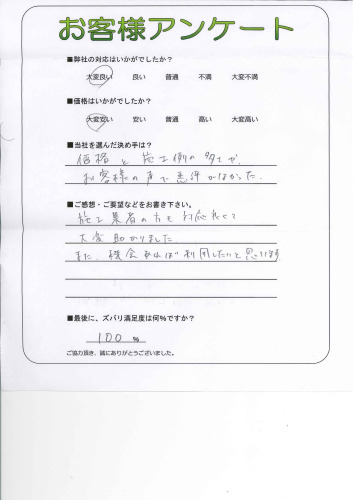 お客様アンケート
■弊社の対応はいかがでしたか？
大変良い 良い 普通 不満 大変不満
■価格はいかがでしたか？
大変安い 安い 普通 高い 大変高い
■当社を選んだ決め手は？
価格と施工例の多さや、
お客様の声で悪評がなかった。
■ご感想・ご要望などをお書き下さい。
施工業者の方も対応良くて
大変助かりました。
また、機会あれば利用したいと思います。
■最後に、ズバリ満足度は何%ですか？
100 %
ご協力頂き、誠にありがとうございました。